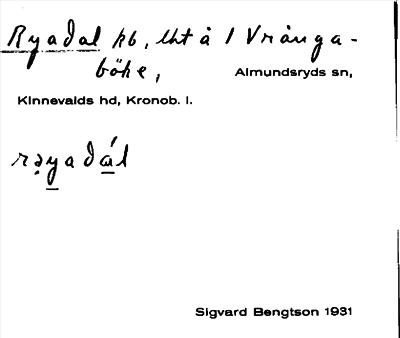 Ryadal kb, lht å 1 Vrånga-
böke, Almundsryds sn,
Kinnevalds hd, Kronob. l.
rəyadál
Sigvard Bengtson 1931